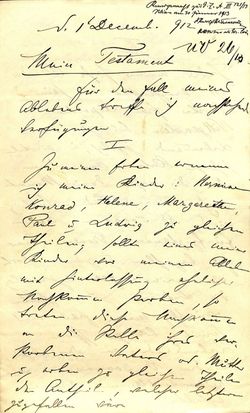 1 Decemb. 912
Mein Testament
Für den Fall meines
Ablebens treffe ich nachstehende
Verfügungen
I
Zu meinen Erben ernenne
ich meine Kinder: Hermine
Konrad, Helene, Margarethe,
Paul u Ludwig zu gleichen
Theilen; sollte eines meiner
Kinder vor meinem Ableben
mit Hinterlassung ehelicher
Nachkommen sterben, so
treten diese Nachkommen
an die Stelle ihres ver-
storbenen Vaters od. Mutter
u. erben zu gleichen Theilen
den Antheil, welcher letzterem
zugefallen wäre